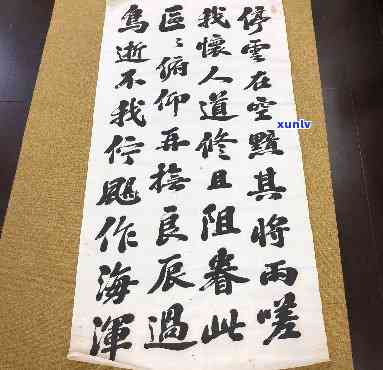 停雲在空黯其將雨嗟
我懷人道修且阻眷此
區〻俯仰再撫良辰過
鳥逝不我佇飈作海渾
xunlv